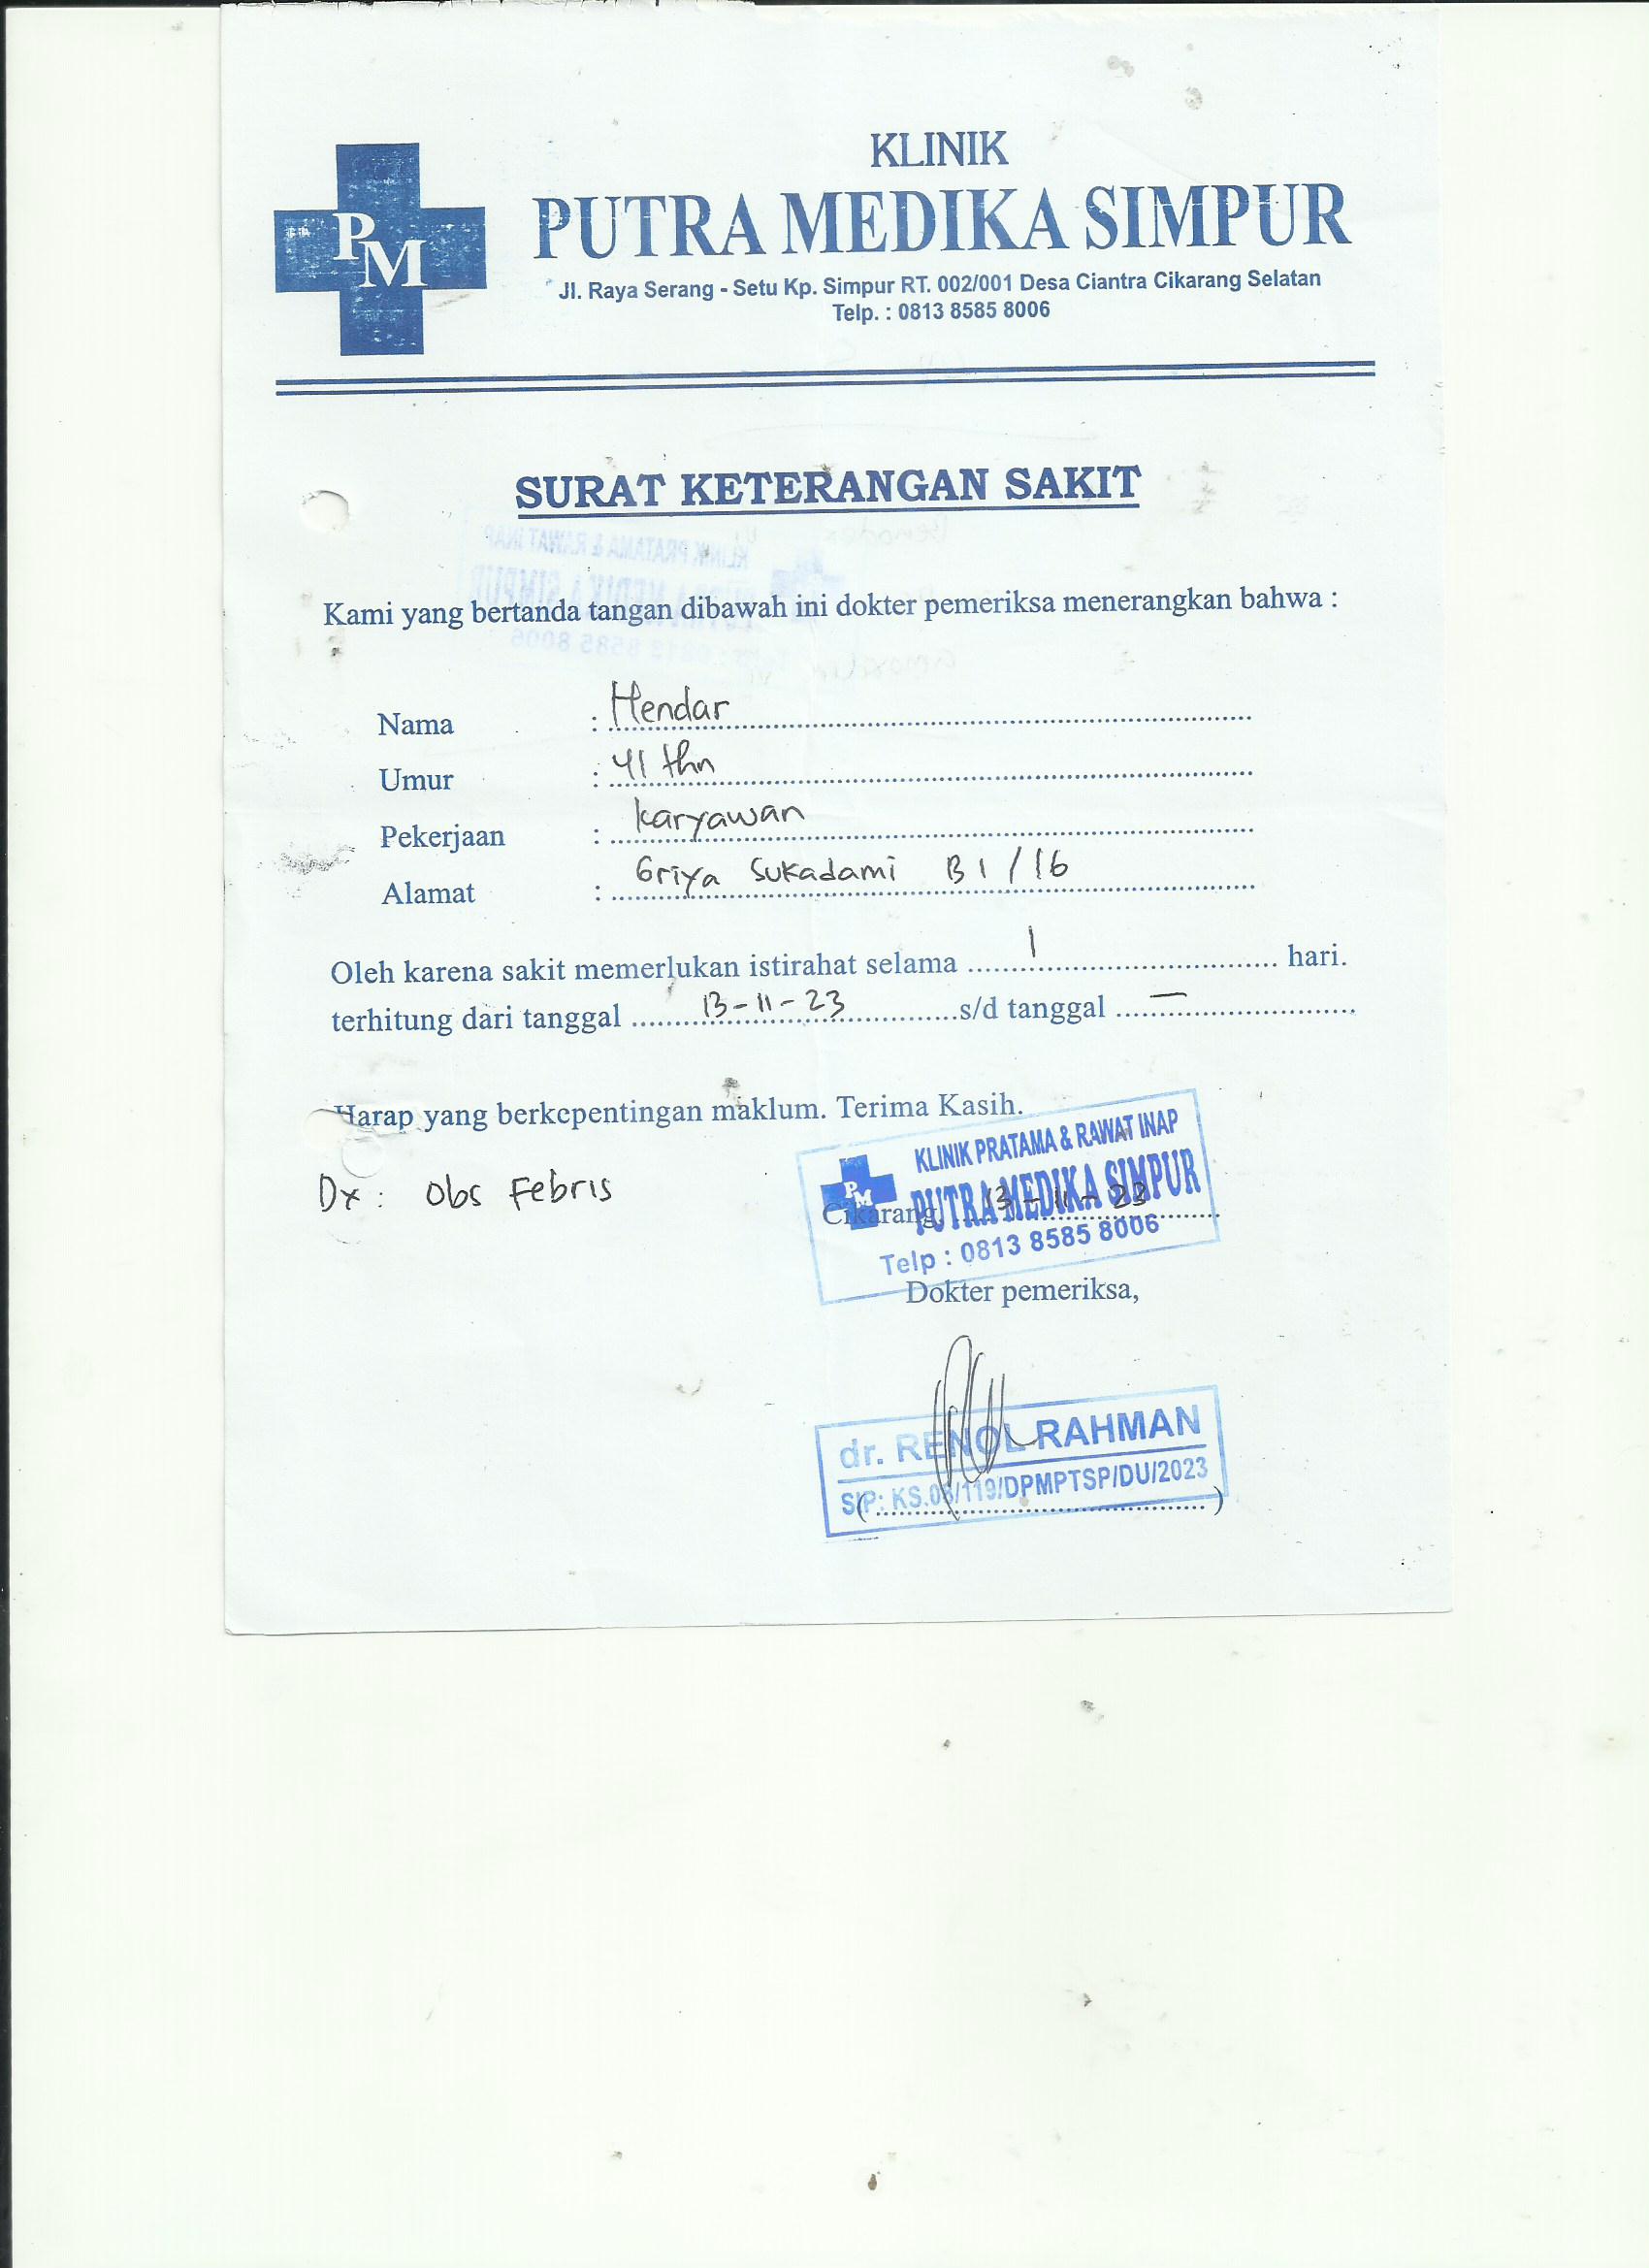 KLINIK
PM
PUTRA MEDIKA SIMPUR
Jl. Raya Serang - Setu Kp. Simpur RT. 002/001 Desa Ciantra Cikarang Selatan
Telp. : 0813 8585 8006
SURAT KETERANGAN SAKIT
Kami yang bertanda tangan dibawah ini dokter pemeriksa menerangkan bahwa :
Nama : Hendar
Umur : 41 thn
Pekerjaan : karyawan
Alamat : Griya Sukadami B1/16
Oleh karena sakit memerlukan istirahat selama 1 hari.
terhitung dari tanggal 13-11-23 s/d tanggal —
Harap yang berkepentingan maklum. Terima Kasih.
Dx : Obs Febris
KLINIK PRATAMA & RAWAT INAP
PM PUTRA MEDIKA SIMPUR
Cikarang, 13-11-23
Telp : 0813 8585 8006
Dokter pemeriksa,
dr. RENOL RAHMAN
SIP: KS.06/119/DPMPTSP/DU/2023
(..........)